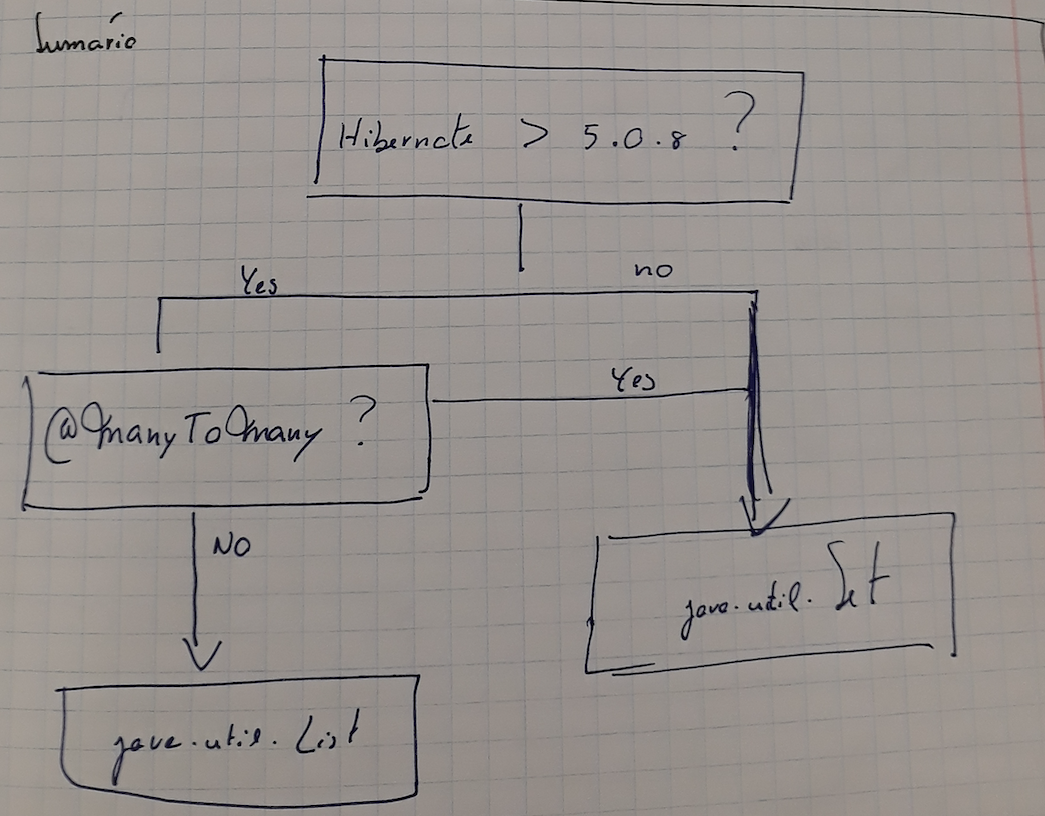 Sumário
Hibernate > 5.0.8 ?
Yes
no
@ManyToMany ?
Yes
NO
java.util.Set
java.util.List